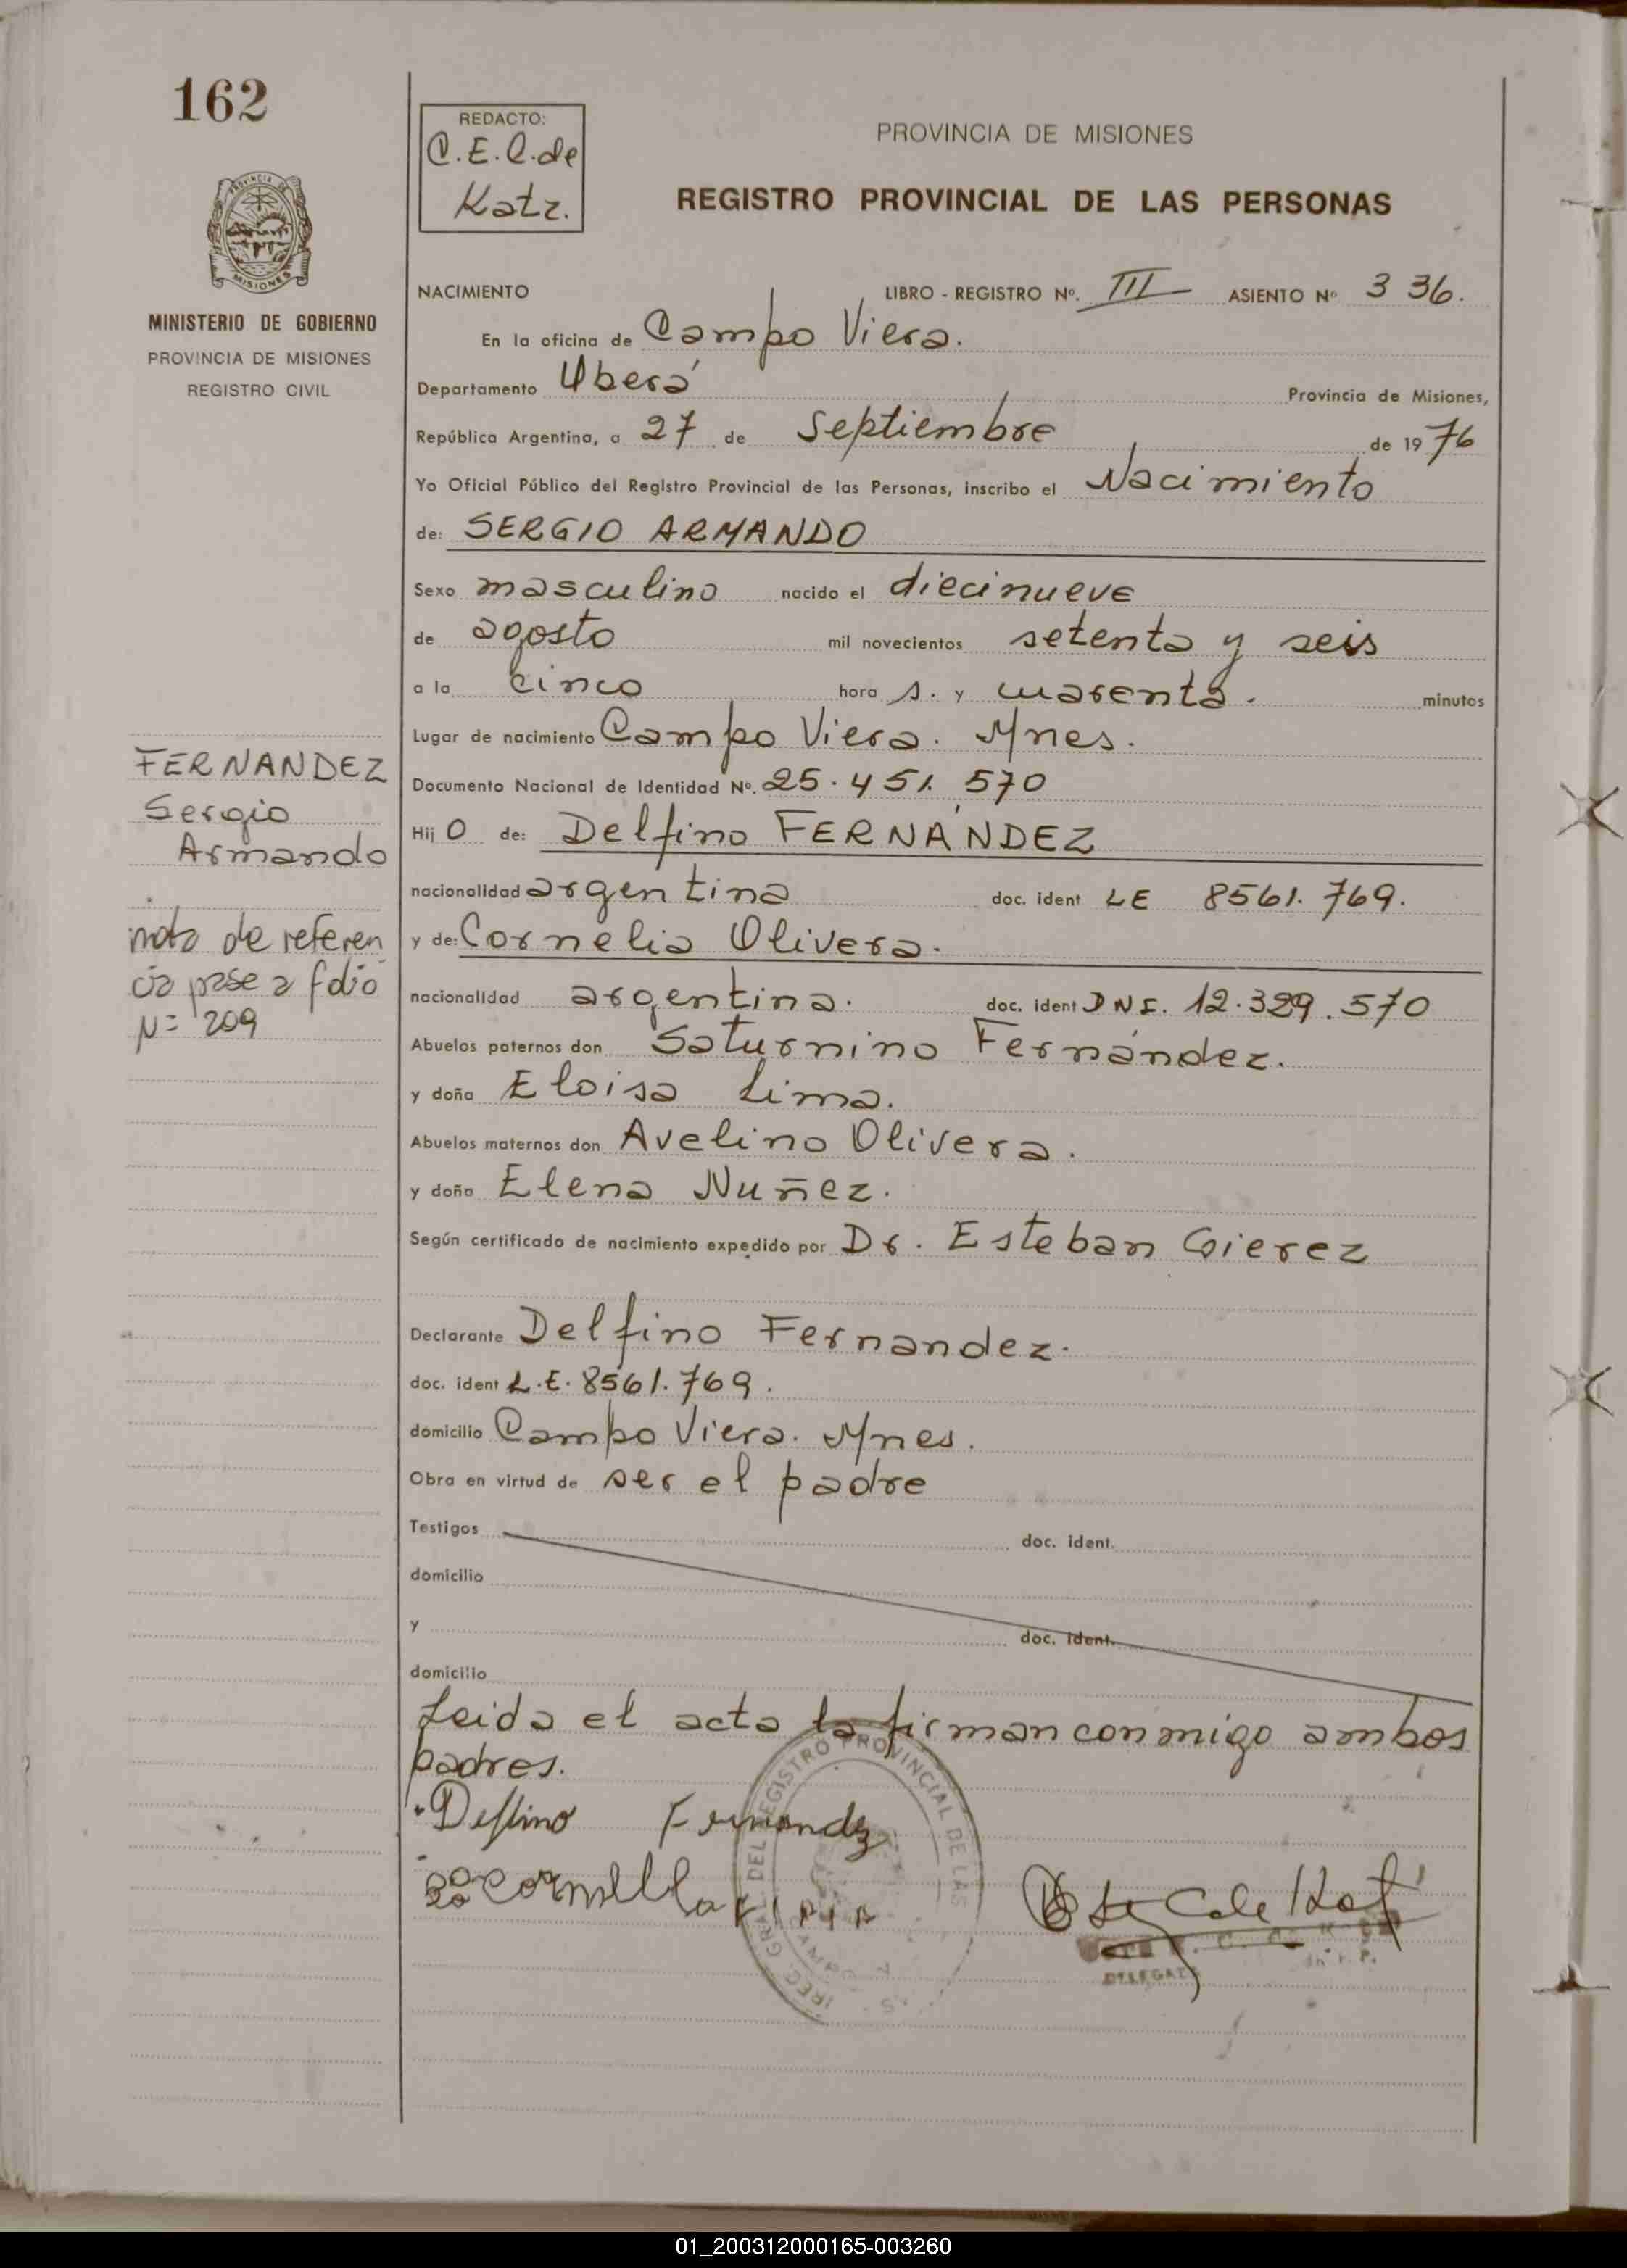 162
REDACTO:
C.E.C. de
Katz.
PROVINCIA DE MISIONES
REGISTRO PROVINCIAL DE LAS PERSONAS
PROVINCIA DE
MISIONES
MINISTERIO DE GOBIERNO
PROVINCIA DE MISIONES
REGISTRO CIVIL
NACIMIENTO LIBRO - REGISTRO Nº. III ASIENTO Nº 336.
En la oficina de Campo Viera.
Departamento Oberá Provincia de Misiones,
República Argentina, a 27 de Septiembre de 1976
Yo Oficial Público del Registro Provincial de las Personas, inscribo el Nacimiento
de: SERGIO ARMANDO
Sexo masculino nacido el diecinueve
de agosto mil novecientos setenta y seis
a la cinco hora s. y cuarenta. minutos
Lugar de nacimiento Campo Viera. Mnes.
Documento Nacional de Identidad Nº. 25.451.570
FERNANDEZ
Sergio
Armando
Hijo de: Delfino FERNÁNDEZ
nacionalidad argentina doc. ident LE 8561.769.
nota de referen
cia pase a folio
N= 209
y de: Cornelia Olivera.
nacionalidad argentina. doc. ident DNI. 12.329.570
Abuelos paternos don Saturnino Fernández.
y doña Eloisa Lima.
Abuelos maternos don Avelino Olivera.
y doña Elena Nuñez.
Según certificado de nacimiento expedido por Dr. Esteban Gierez
Declarante Delfino Fernandez.
doc. ident L.E. 8561.769.
domicilio Campo Viera. Mnes.
Obra en virtud de ser el padre
Testigos doc. ident.
domicilio
y doc. ident.
domicilio
Leida el acta la firman conmigo ambos
padres.
Delfino Fernandez
REGISTRO PROVINCIAL DE LAS
DELEGADA
01_200312000165-003260